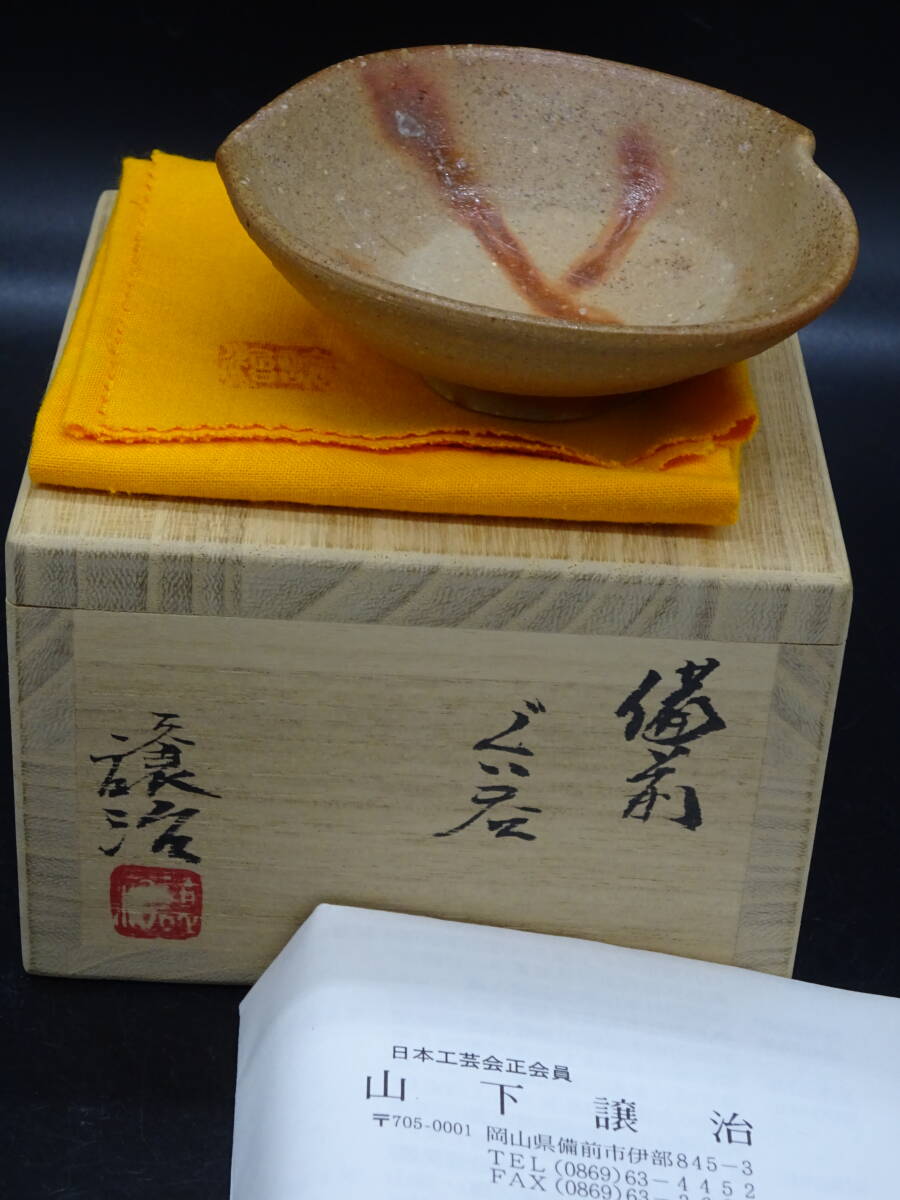 備前
ぐい呑
譲治
日本工芸会正会員
山下譲治
〒705-0001 岡山県備前市伊部845-3
TEL (0869)63-4452
FAX (0869)63-